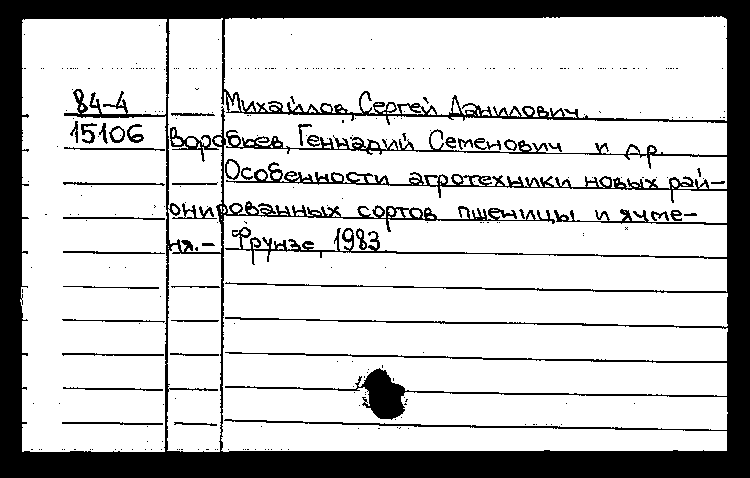 84-4 Михайлов, Сергей Данилович.
15106 Воробьев, Геннадий Семенович и др.
Особенности агротехники новых рай-
онированных сортов пшеницы и ячме-
ня.- Фрунзе, 1983